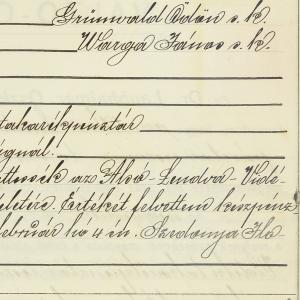 Grünwald Ödön s.k.
Warga János s.k.
takarékpénztár
ignál.
az Alsó-Lendva-Vidé-
életére. Értékét felvettem készpénz
február hó 4 én. Szedonja